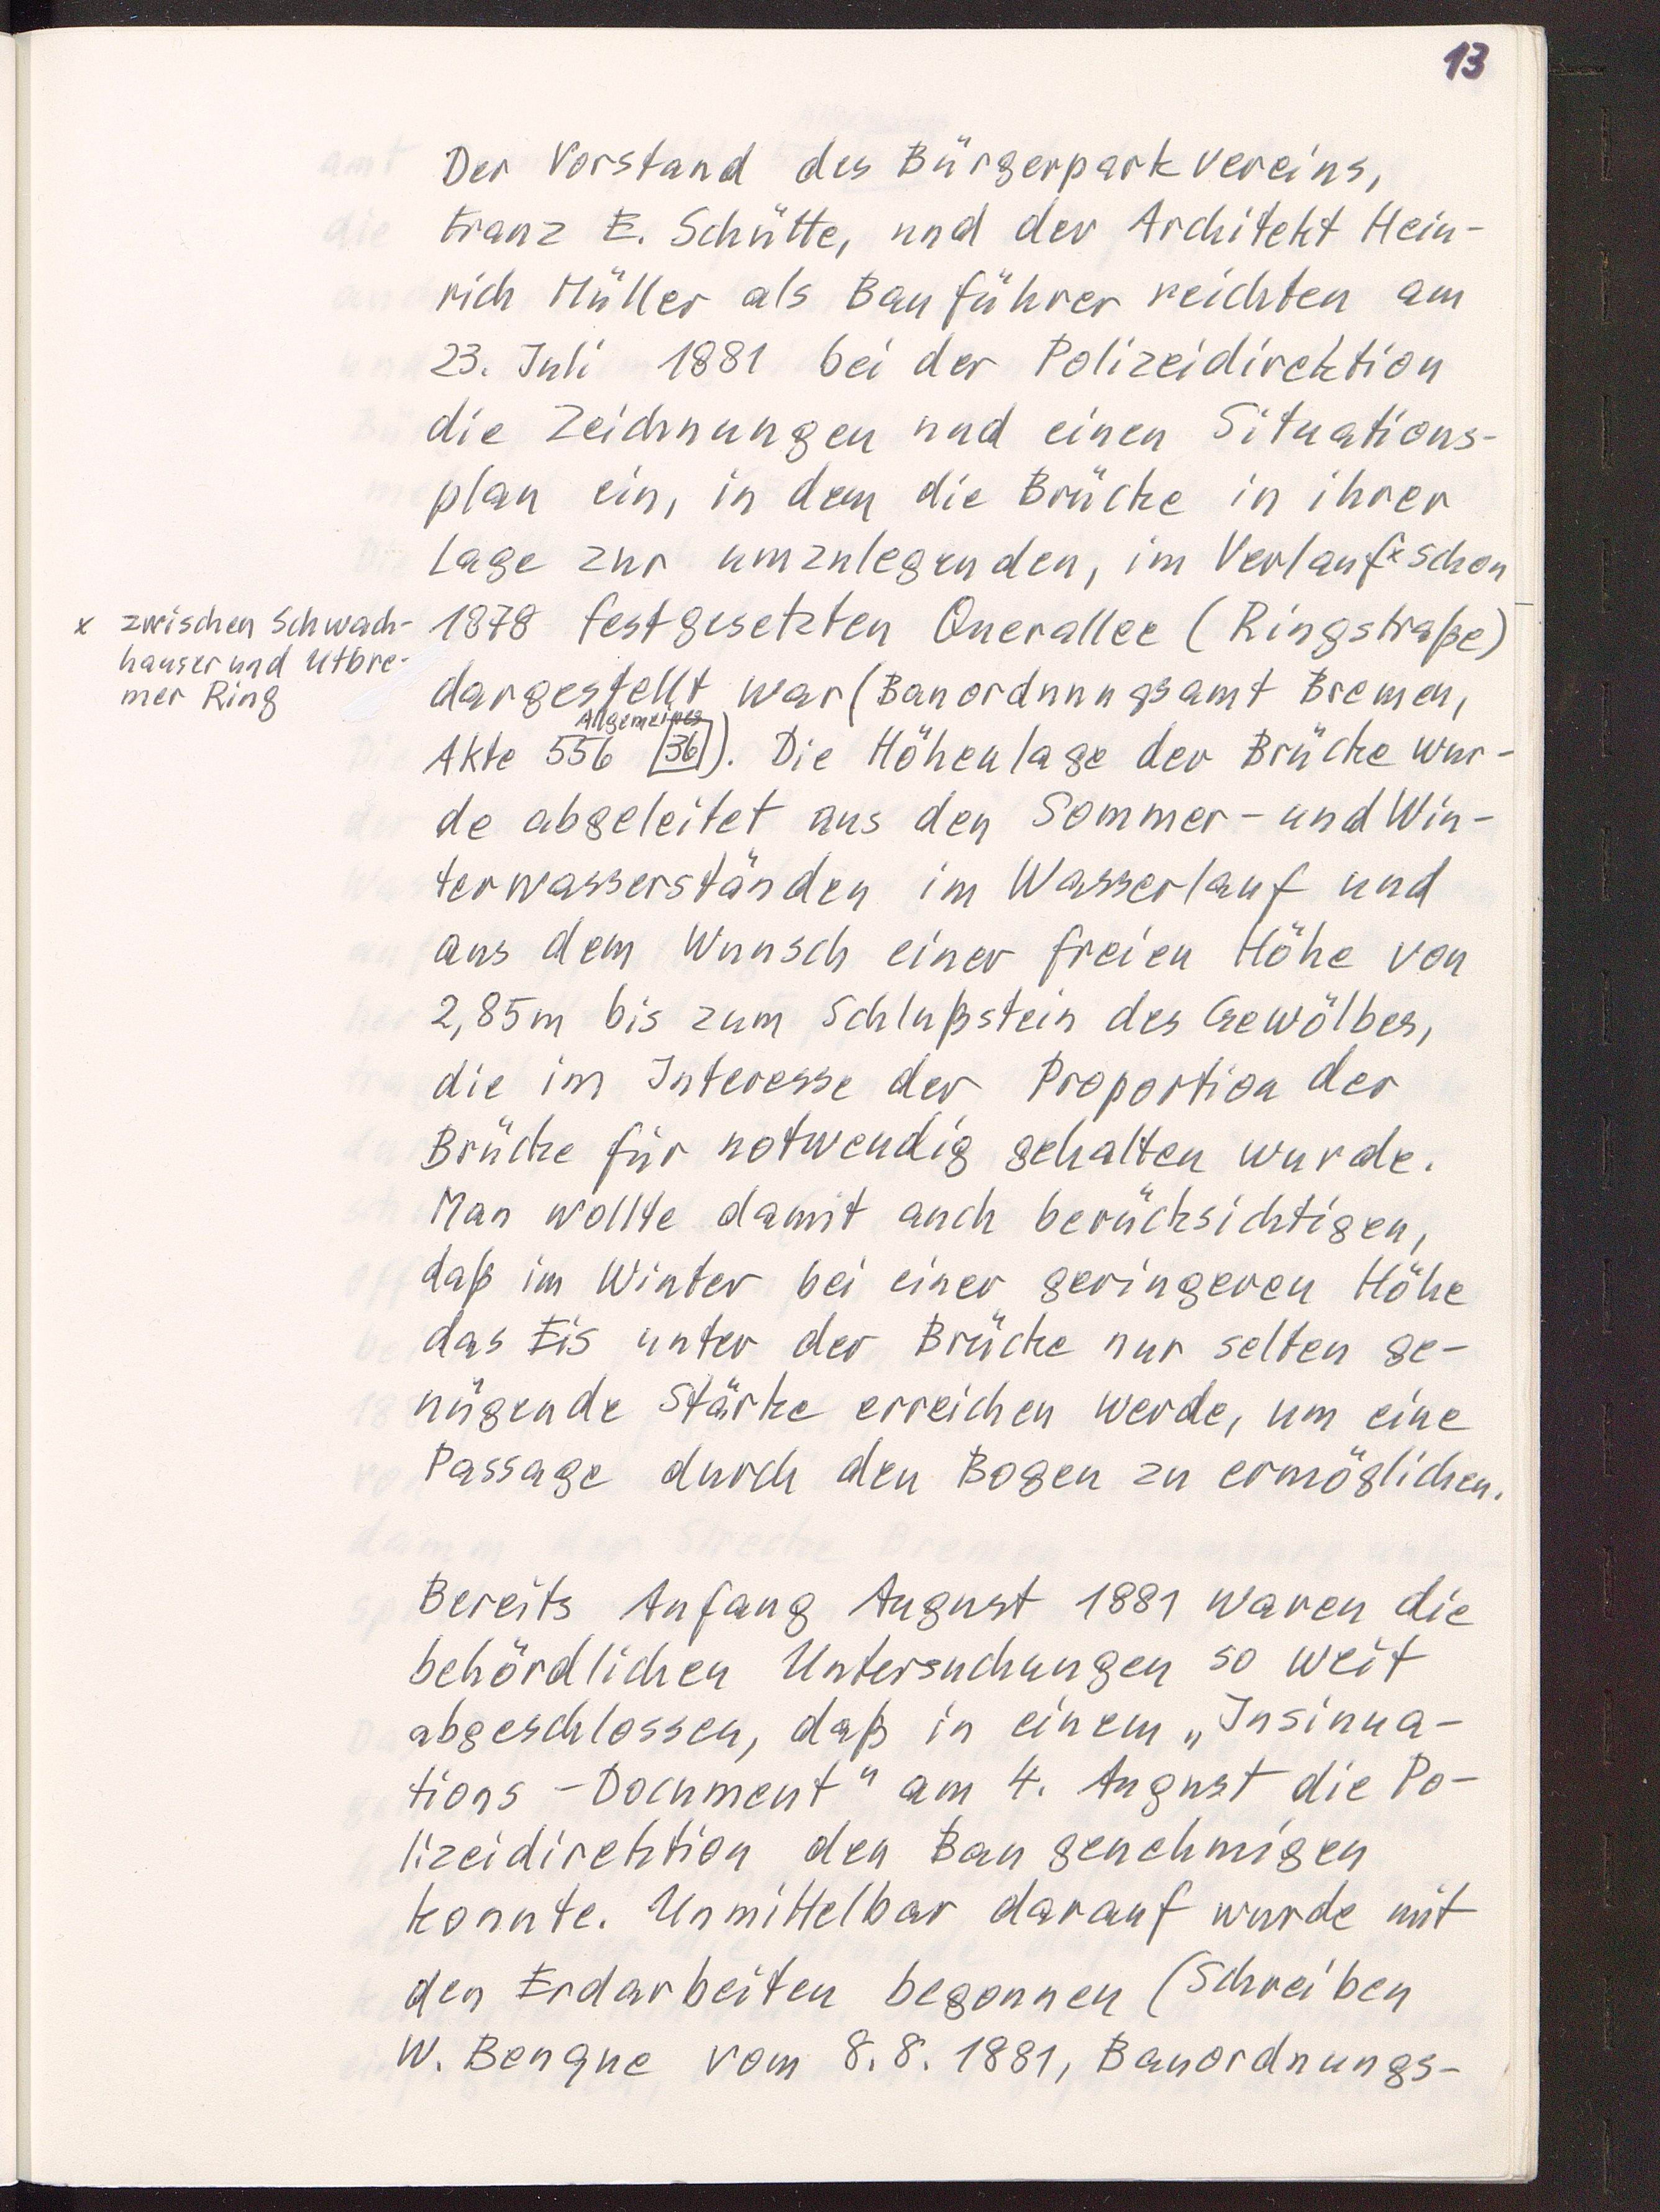 13
Der Vorstand des Bürgerparkvereins,
Franz E. Schütte, und der Architekt Hein-
rich Müller als Bauführer reichten am
23. Juli 1881 bei der Polizeidirektion
die Zeichnungen und einen Situations-
plan ein, in dem die Brücke in ihrer
Lage zur umzulegenden, im Verlauf x schon
1878 festgesetzten Querallee (Ringstraße)
x zwischen Schwach-
hauser und Utbre-
mer Ring
dargestellt war (Bauordnungsamt Bremen,
Allgemeines
Akte 556 36). Die Höhenlage der Brücke wur-
de abgeleitet aus den Sommer- und Win-
terwasserständen im Wasserlauf und
aus dem Wunsch einer freien Höhe von
2,85m bis zum Schlußstein des Gewölbes,
die im Interesse der Proportion der
Brücke für notwendig gehalten wurde.
Man wollte damit auch berücksichtigen,
daß im Winter bei einer geringeren Höhe
das Eis unter der Brücke nur selten ge-
nügende Stärke erreichen werde, um eine
Passage durch den Bogen zu ermöglichen.
Bereits Anfang August 1881 waren die
behördlichen Untersuchungen so weit
abgeschlossen, daß in einem „Insinua-
tions-Document" am 4. August die Po-
lizeidirektion den Bau genehmigen
konnte. Unmittelbar darauf wurde mit
den Erdarbeiten begonnen (Schreiben
W. Benque vom 8.8.1881, Bauordnungs-